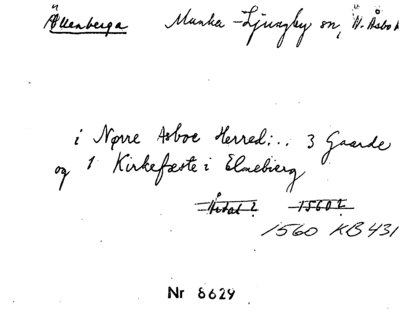 Ållenberga Munka-Ljungby sn, N. Åsbo h
i Nørre Asboe Herred: .. 3 Gaarde
og 1 Kirkefæste i Elmebierg
Årtal? 1560?
1560 KB 431
Nr 8629